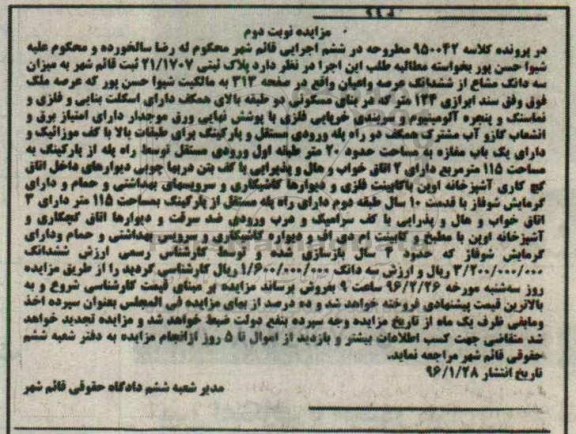 مزایده نوبت دوم
در پرونده کلاسه ۹۵۰۰۴۲ مطروحه در ششم اجرایی قائم شهر محکوم له رضا سالخورده و محکوم علیه
شیوا حسن پور بخواسته مطالبه طلب این اجرا در نظر دارد پلاک ثبتی ۲۱/۱۷۰۷ ثبت قائم شهر به میزان
سه دانگ مشاع از ششدانگ عرصه واعیان واقع در صفحه ۳۱۳ به مالکیت شیوا حسن پور که عرصه ملک
فوق وفق سند ابرازی ۱۳۴ متر که در بنای مسکونی دو طبقه بالای همکف دارای اسکلت بنایی و فلزی و
نماسنگ و پنجره آلومینیوم و سربندی خرپایی فلزی با پوشش نهایی ورق موجدار دارای امتیاز برق و
انشعاب گازو آب مشترک همکف دو راه پله ورودی مستقل و پارکینگ برای طبقات بالا با کف موزائیک و
دارای یک باب مغازه به مساحت حدود ۲۰ متر طبقه اول ورودی مستقل توسط راه پله از پارکینگ به
مساحت ۱۱۵ مترمربع دارای ۲ اتاق خواب و هال و پذیرایی با کف بتن دربها چوبی دیوارهای داخل اتاق
گچ کاری آشپزخانه اوپن باکابینت فلزی و دیوارها کاشیکاری و سرویسهای بهداشتی و حمام و دارای
گرمایش شوفاژ با قدمت ۱۰ سال طبقه دوم دارای راه پله مستقل از پارکینگ بمساحت ۱۱۵ متر دارای ۳
اتاق خواب و هال و پذرایی با کف سرامیک و درب ورودی ضد سرقت و دیوارها اتاق گچکاری و
آشپزخانه اوپن با مطبخ و کابینت ام دی اف و دیواره کاشیکاری و سرویس بهداشتی و حمام ودارای
گرمایش شوفاژ که حدود ۳ سال بازسازی شده و توسط کارشناس رسمی ارزش ششدانگ
۳/۲۰۰/۰۰۰/۰۰۰ ریال و ارزش سه دانگ ۱/۶۰۰/۰۰۰/۰۰۰ ریال کارشناسی گردید را از طریق مزایده
روز سه‌شنبه مورخه ۹۶/۲/۲۶ ساعت ۹ بفروش برساند مزایده بر مبنای قیمت کارشناسی شروع و به
بالاترین قیمت پیشنهادی فروخته خواهد شد و ده درصد از بهای مزایده فی المجلس بعنوان سپرده اخذ
ومابقی ظرف یک ماه از تاریخ مزایده وجه سپرده بنفع دولت ضبط خواهد شد و مزایده تجدید خواهد
شد متقاضی جهت کسب اطلاعات بیشتر و بازدید از اموال تا ۵ روز ازانجام مزایده به دفتر شعبه ششم
حقوقی قائم شهر مراجعه نماید.
تاریخ انتشار ۹۶/۱/۲۸
مدیر شعبه ششم دادگاه حقوقی قائم شهر